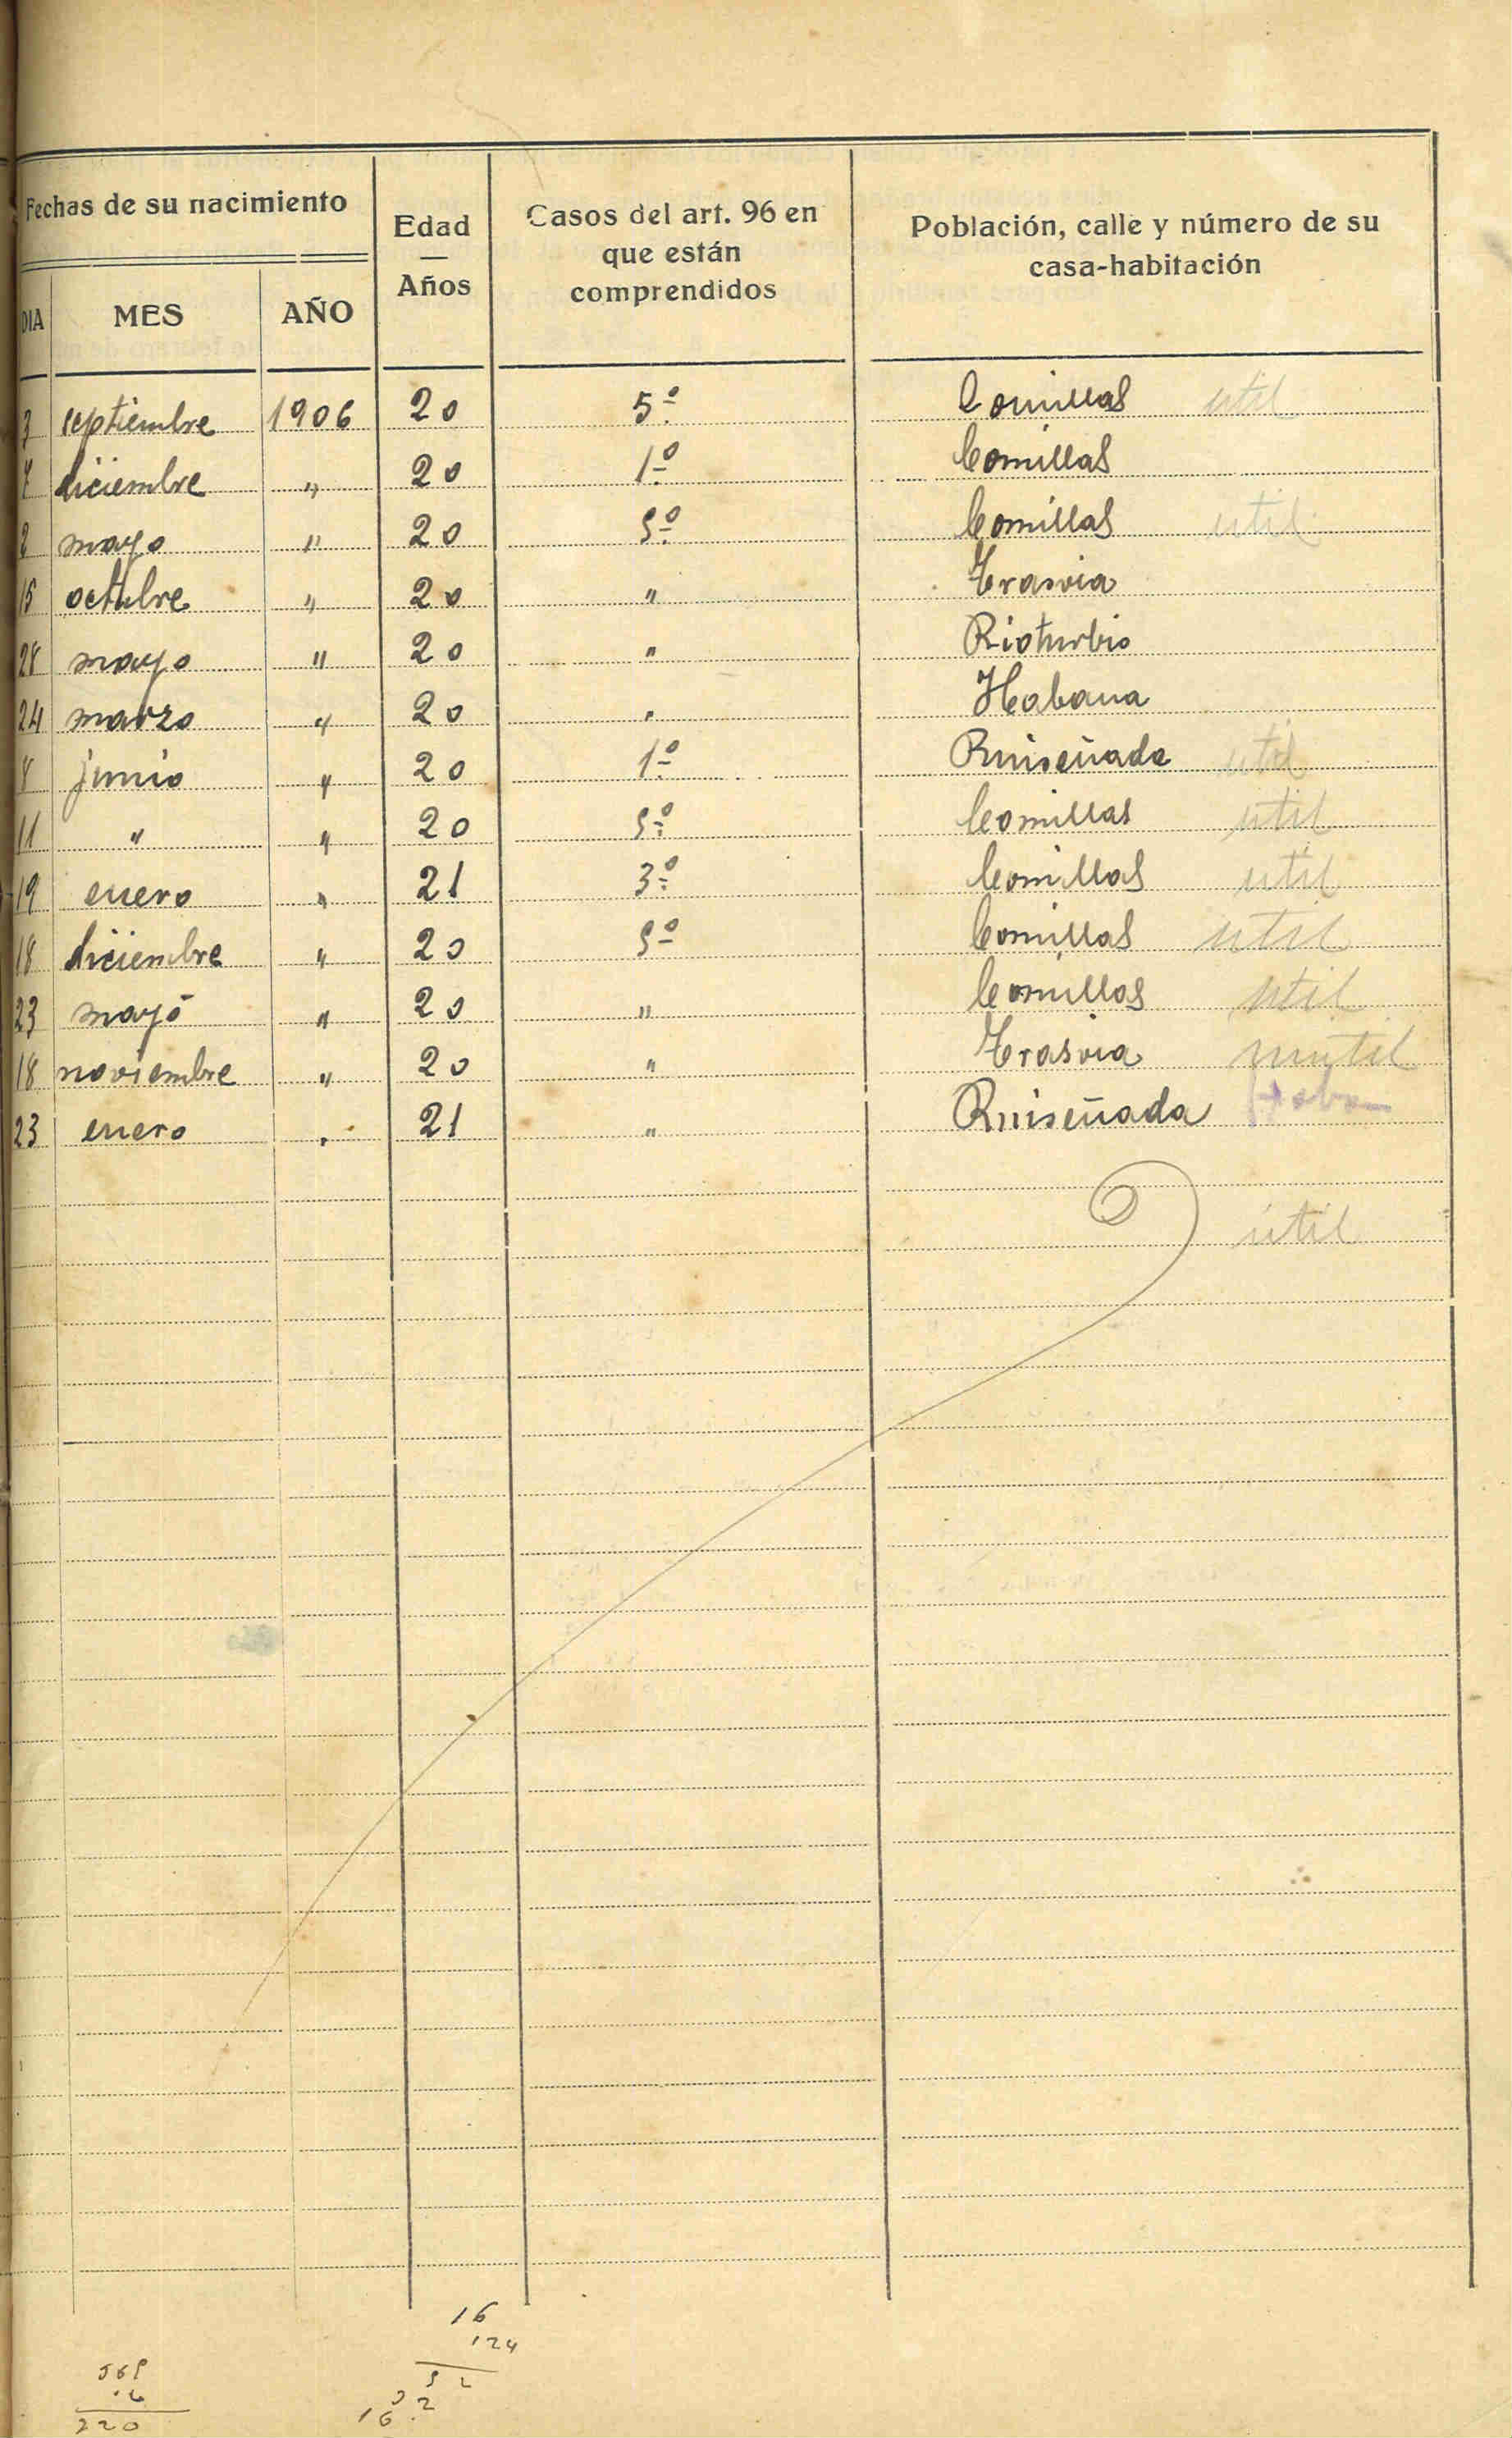 Fechas de su nacimiento
Edad
—
Años
Casos del art. 96 en
que están
comprendidos
Población, calle y número de su
casa-habitación
DIA MES AÑO
septiembre 1906 20 5º Comillas util
diciembre " 20 1º Comillas
mayo " 20 5º Comillas util
15 octubre " 20 " Trasvia
28 mayo " 20 " Rioturbio
24 marzo " 20 " Habana
8 junio " 20 1º Ruiseñada util
11 " " 20 5º Comillas util
19 enero " 21 3º Comillas util
18 diciembre " 20 5º Comillas util
23 mayo " 20 " Comillas util
18 noviembre " 20 " Trasvia inutil
23 enero " 21 " Ruiseñada
util
16
124
220